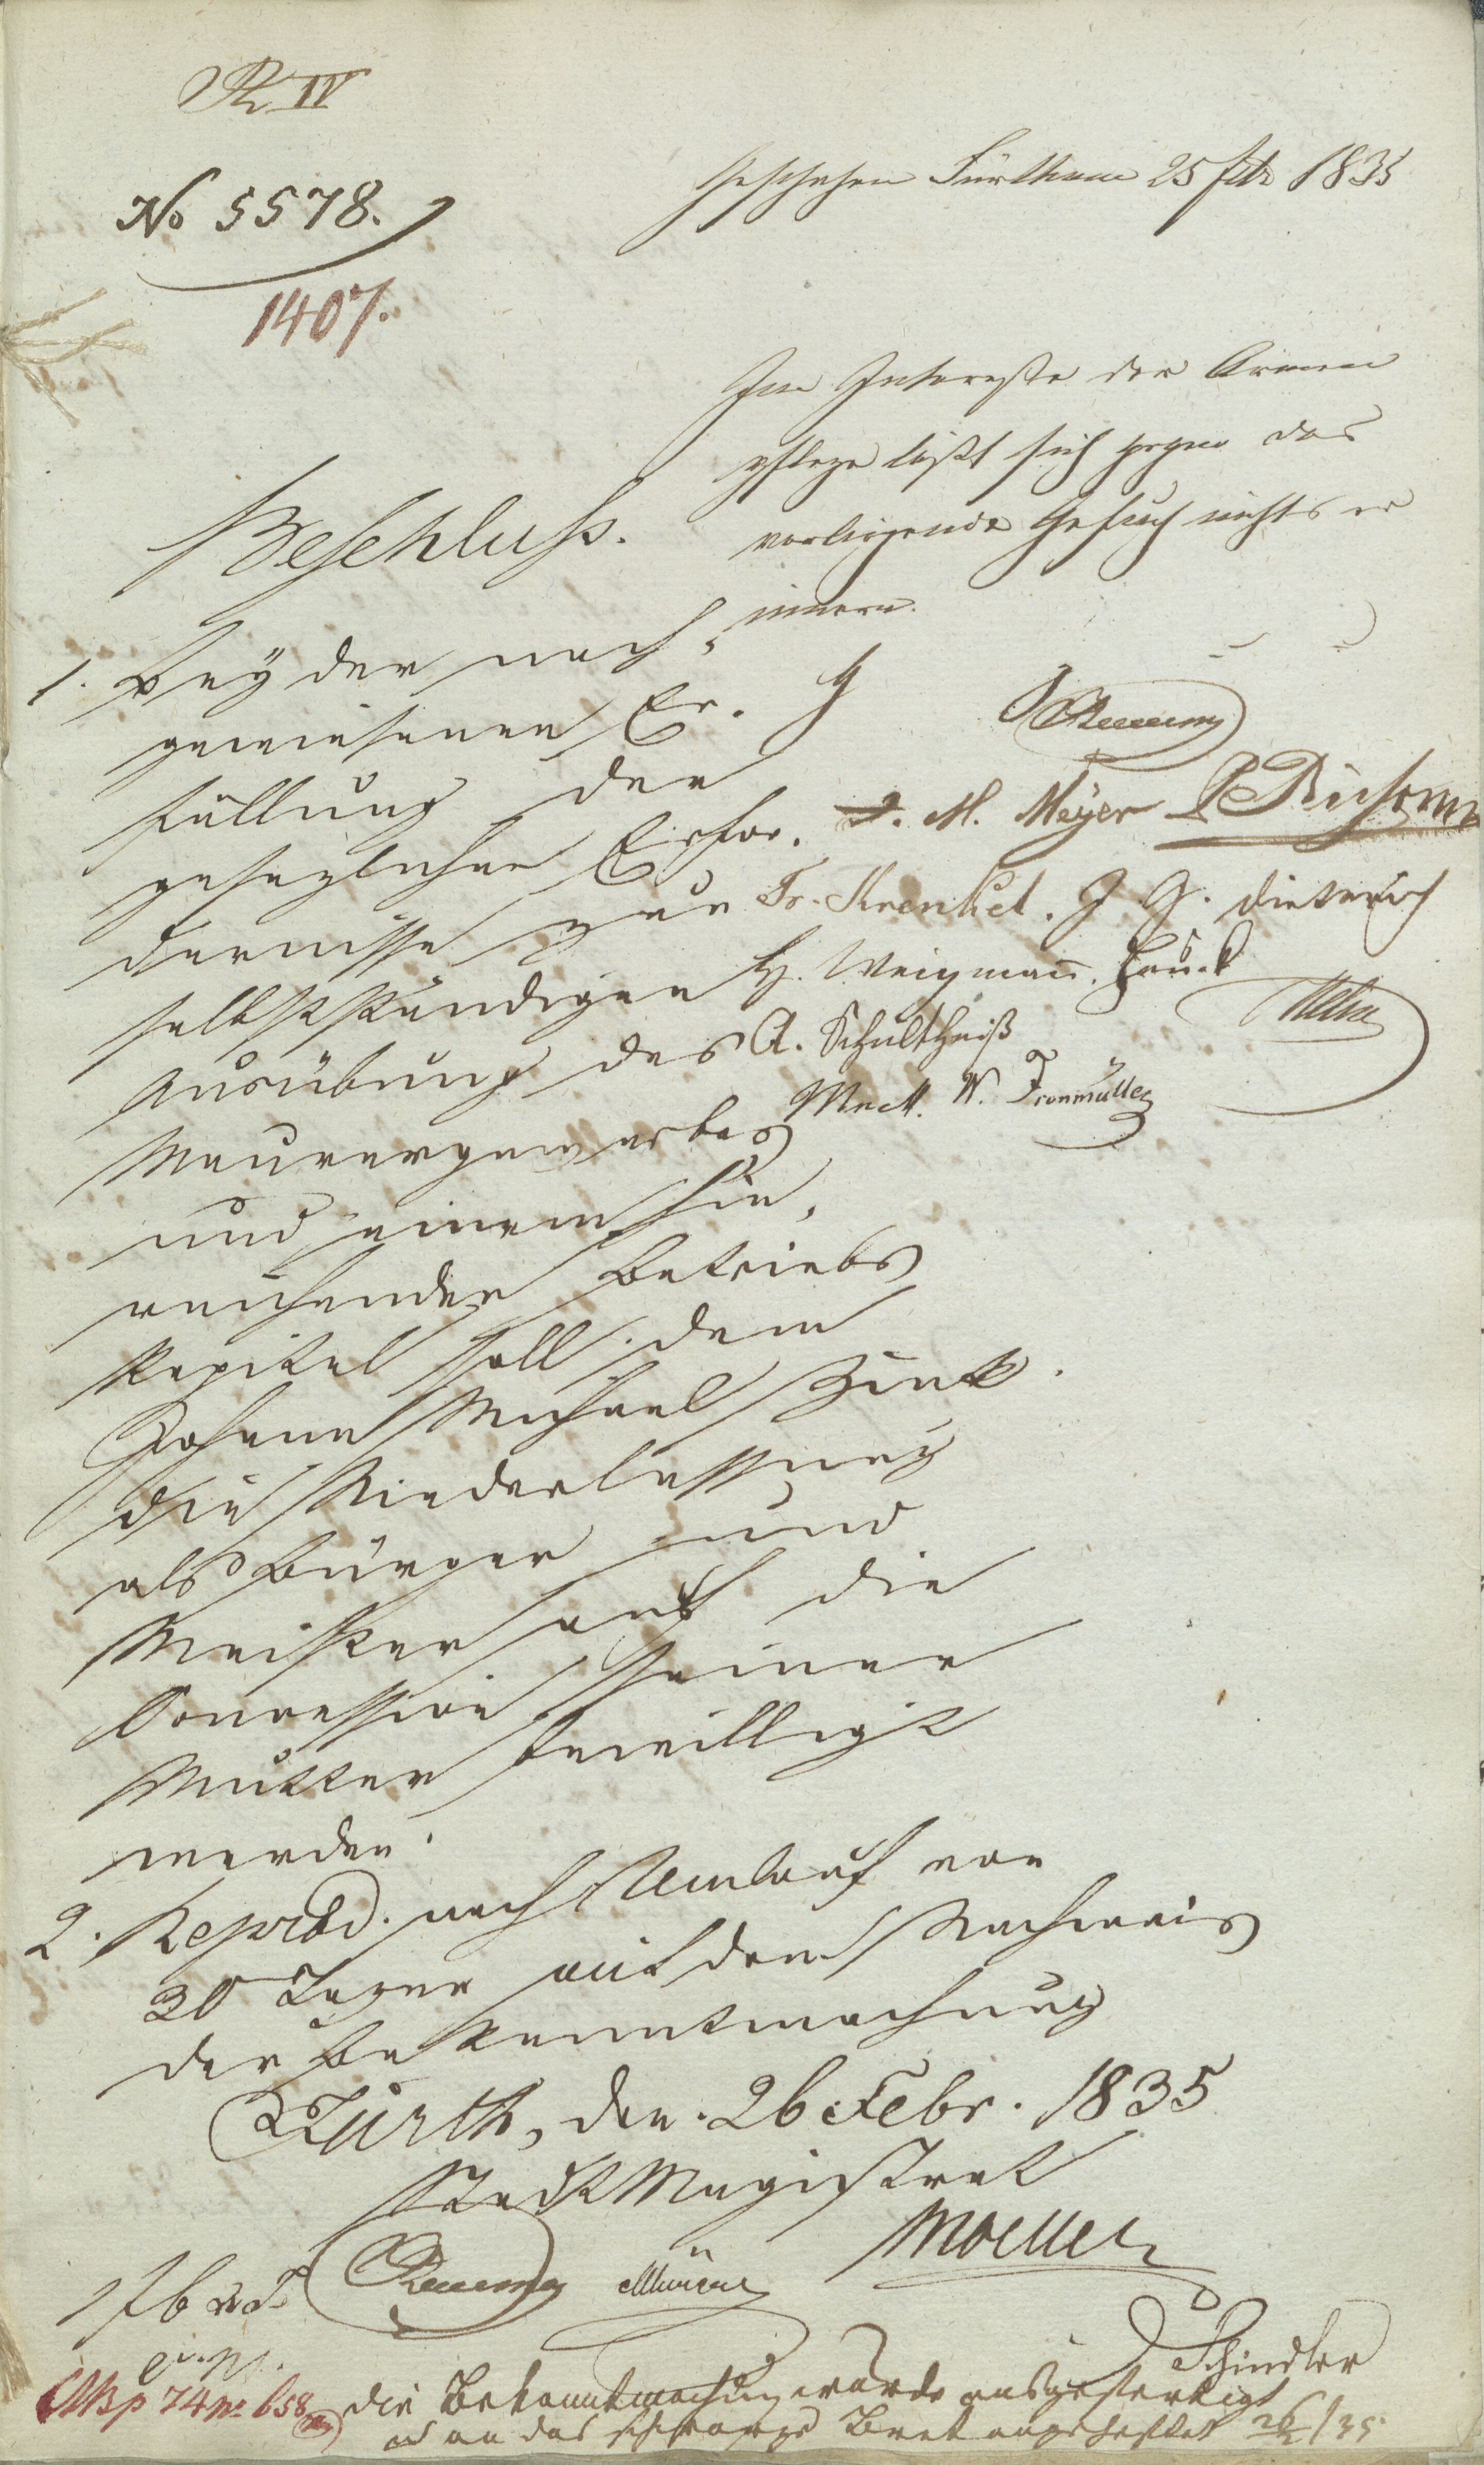 R IV
No 5578.
1407.
Geschehen Fürth am 25 Febr 1835
Im Interesse der Armen
pflege läßt sich gegen das
vorliegende Gesuch nichts er
innern.
J. M. Meyer
Fr. Krenkel. J G. Dieterich
H. Weigmann.
A. Schultheiß
W. Fronmüller
Beschluß.
1. Bey der nach,
gewiesenen Er.
füllung der
gesezlichen Erfor.
dernisse zur
selbstständigen
Ausübung des
Maurergewerbes
und einem hin,
reichenden Betriebs
Kapital soll dem
Johann Michael Zink
die Niederlassung
als Bürger und
Meister auf die
Concession seiner
Mutter bewilligt
werden.
2. Reprod. nach Umlauf von
30 Tagen mit dem Nachweis
der Bekanntmachung
Fürth, den 26 Febr. 1835
StadtMagistrat
Moeller
Schindler
74 No 658
die Bekanntmachung wurde ausgefertigt
u an das schwarze Bret angeheftet 26/2 35